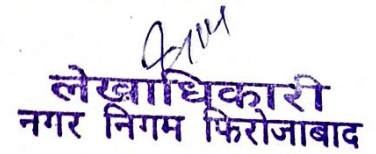 लेखाधिकारी
नगर निगम फिरोजाबाद